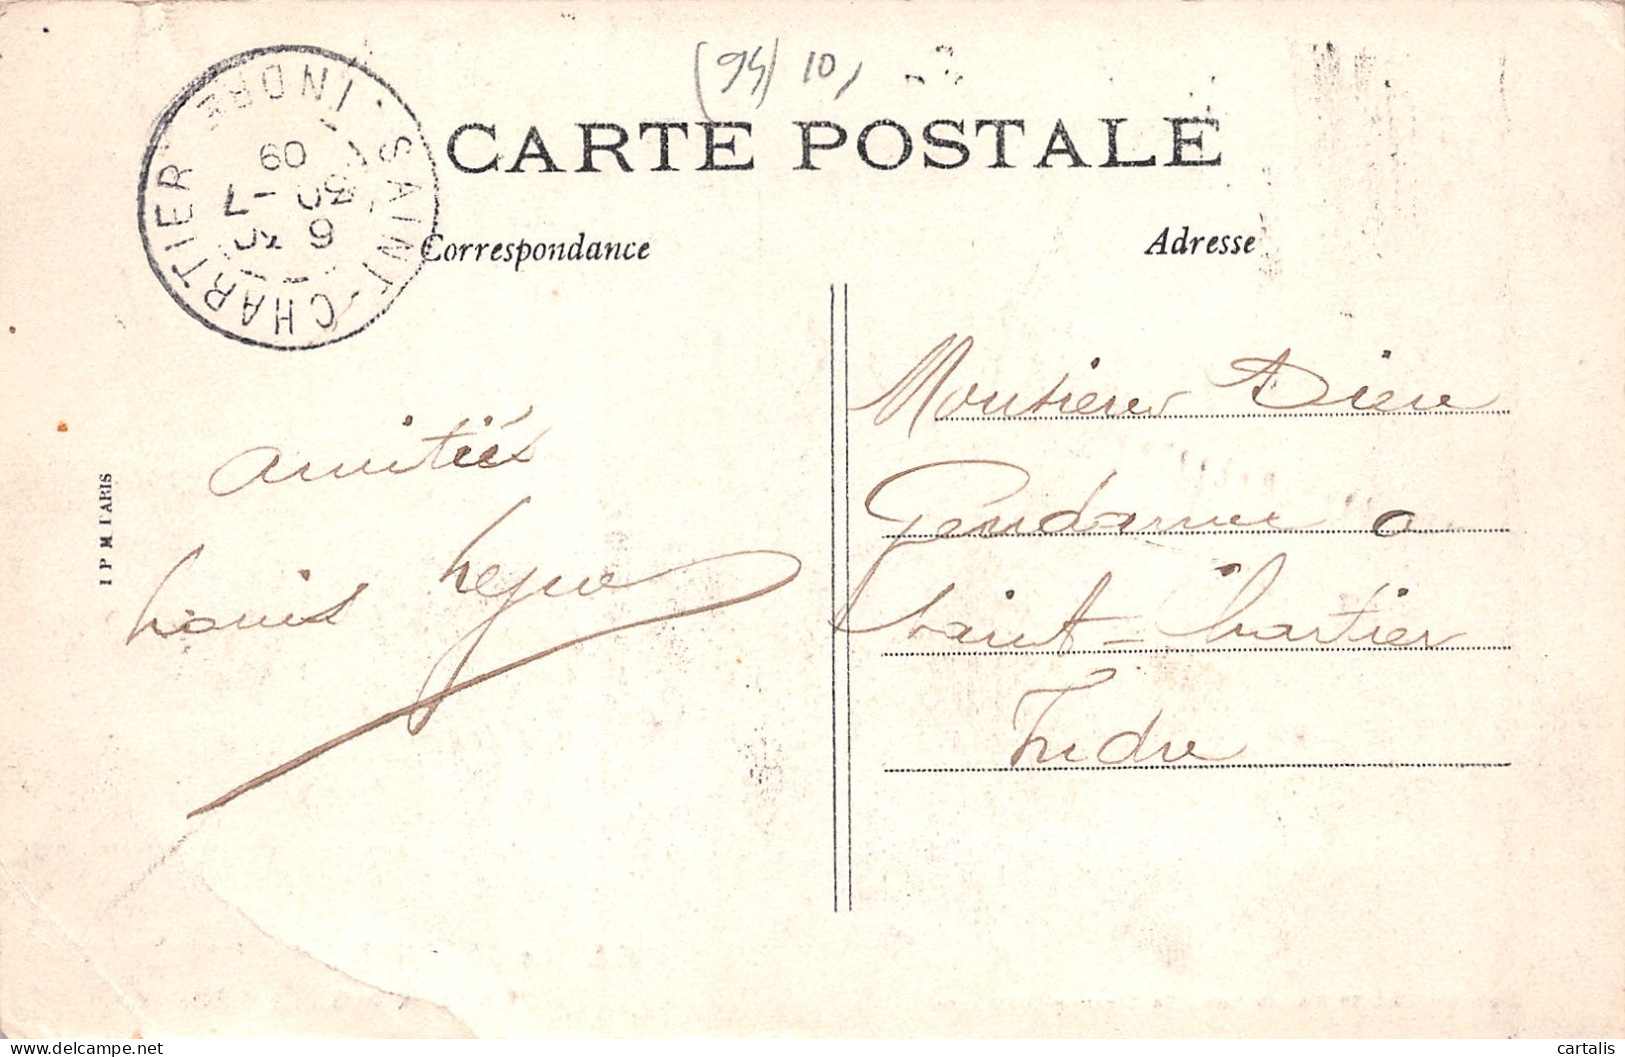 (94) 10,
CARTE POSTALE
Correspondance
Adresse
SAINT-CHARTIER
INDRE
09
amitiés
Louis
Monsieur Dieu
Gendarme a
Saint-Chartier
Indre
I P M PARIS
cartalis
delcampe.net